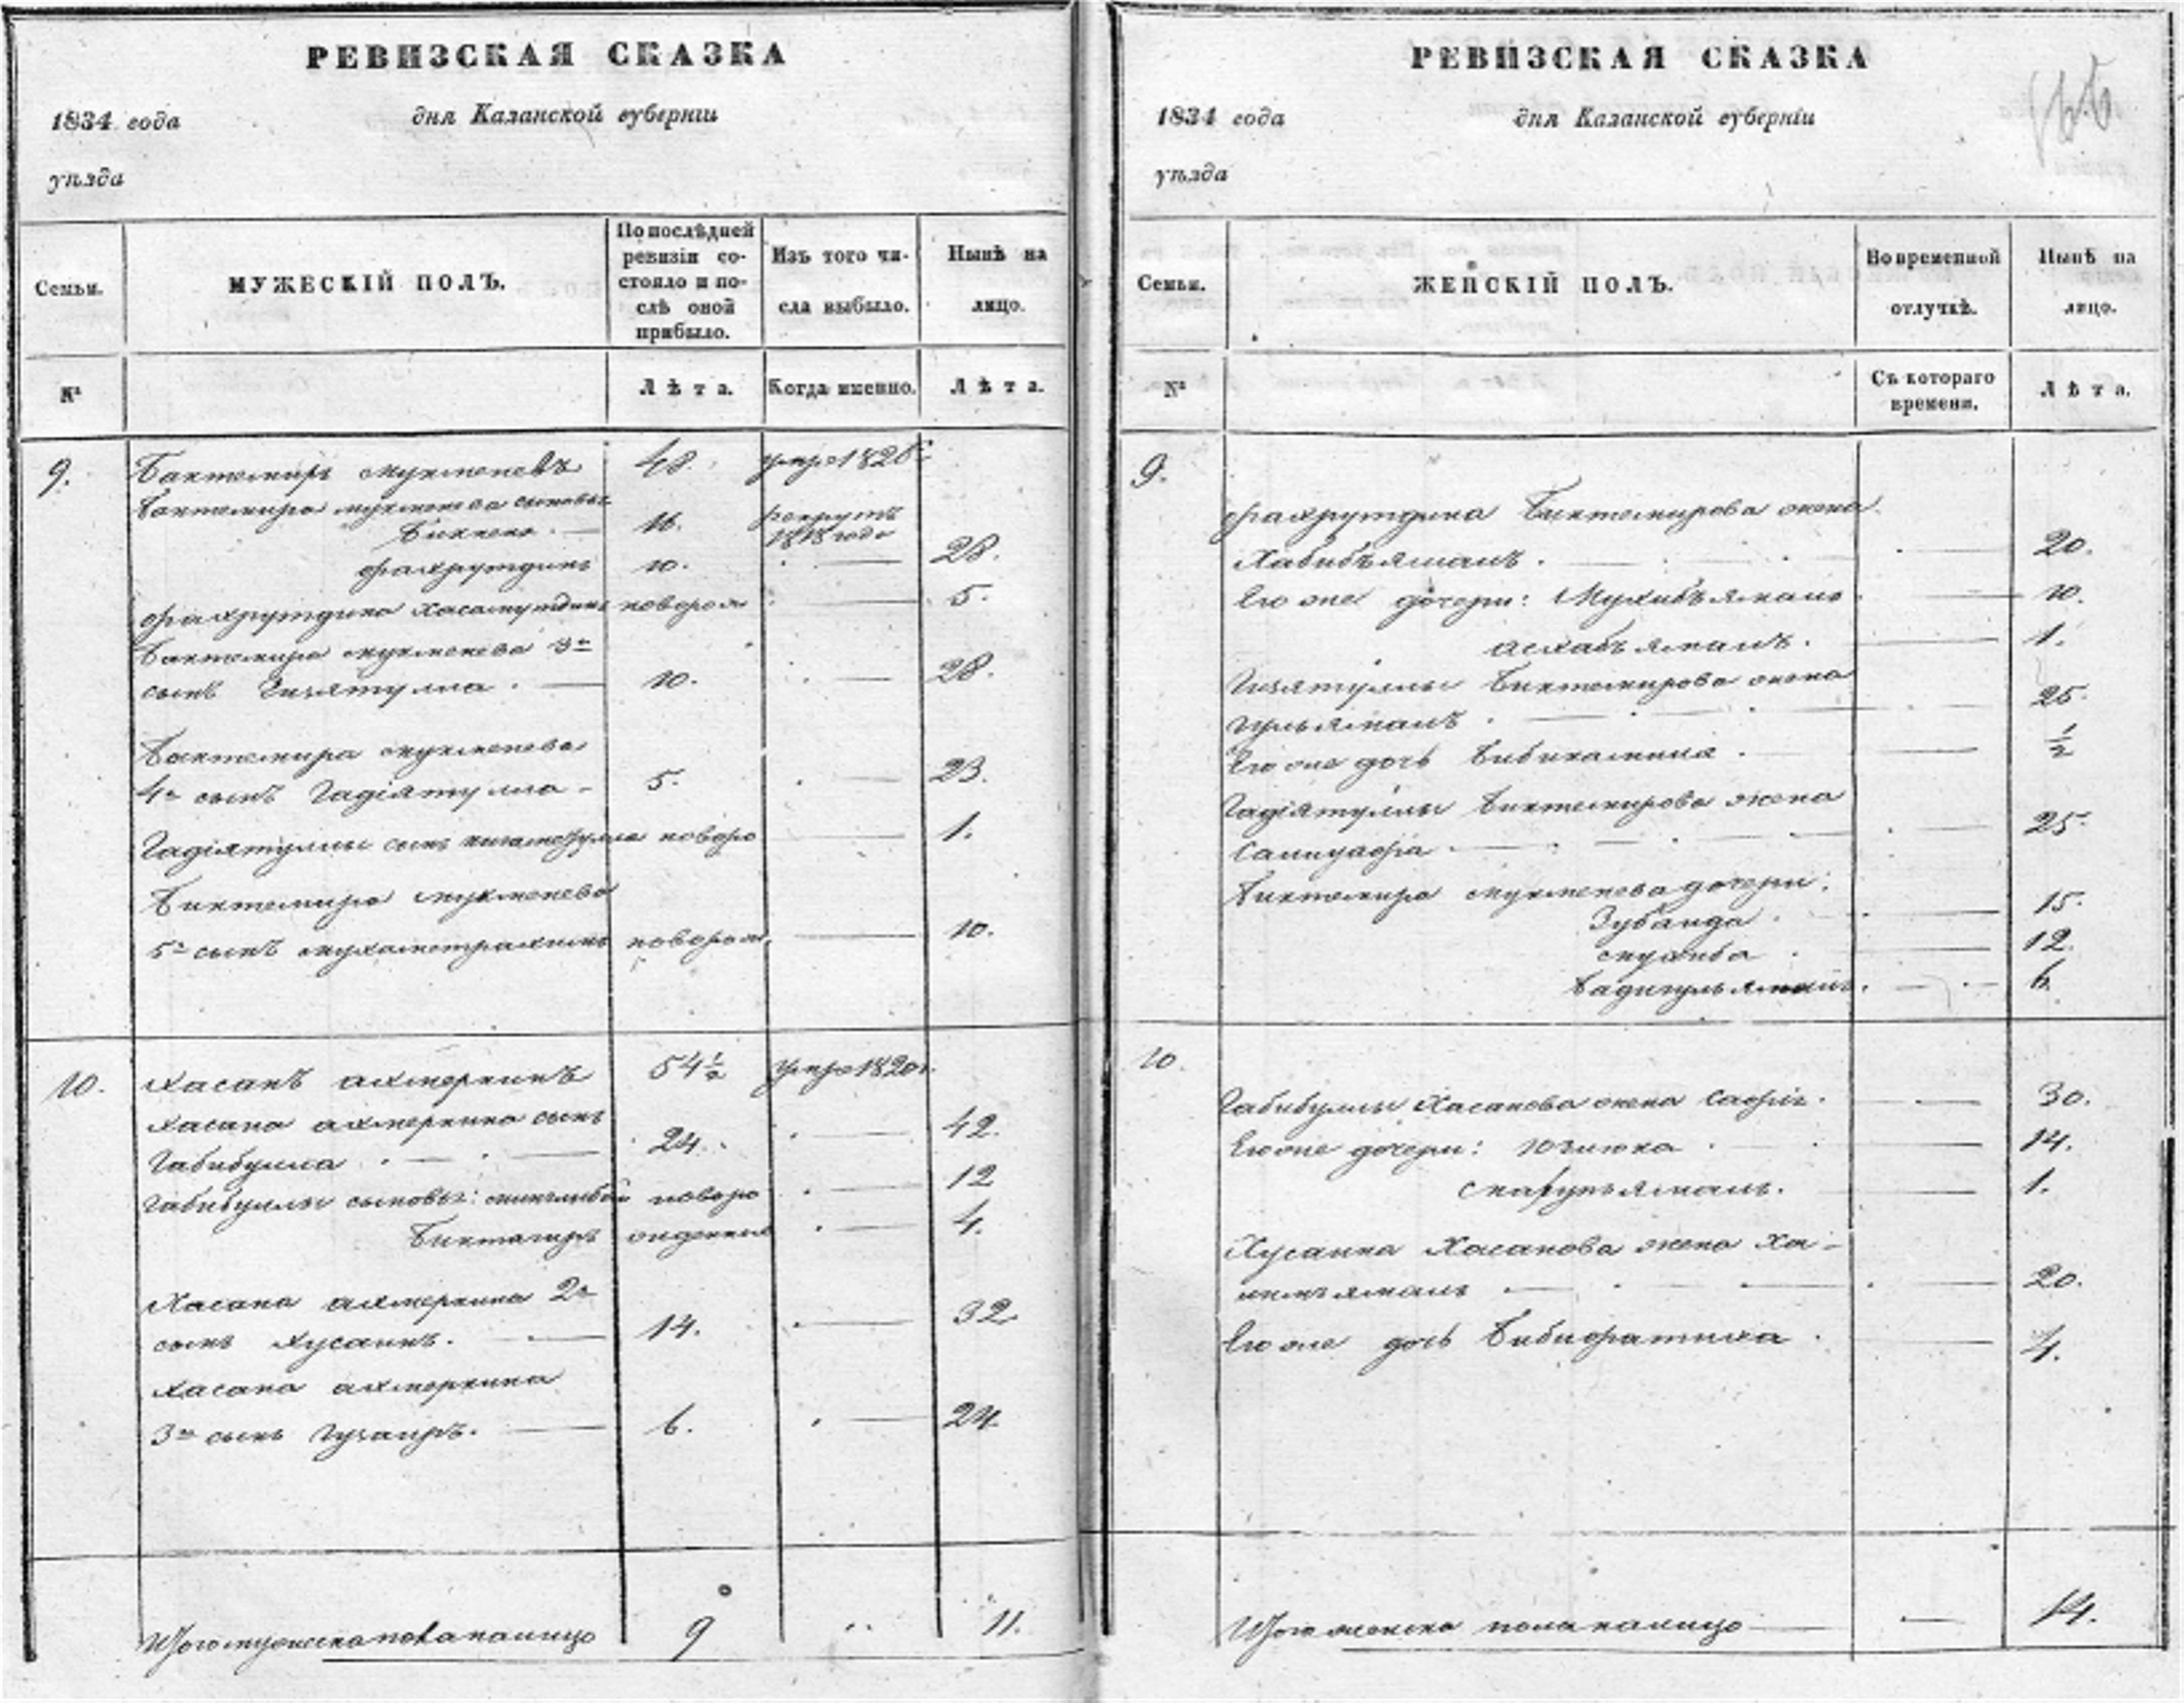 РЕВИЗСКАЯ СКАЗКА
1834 года дня Казанской губерніи
уѣзда
Семьи. МУЖЕСКІЙ ПОЛЪ. По послѣдней ревизіи состояло и послѣ оной прибыло. Изъ того числа выбыло. Нынѣ на лицо.
№ Лѣта. Когда именно. Лѣта.
9. Бактемиръ Мукменевъ 48. умре 1826
Бактемира Мукменева сыновья
16. рекрутъ 1818 года
Фахрутдинъ 10. 28.
Фахрутдина Хасамутдинъ новорож 5.
Бактемира Мукменева 3й
сынъ Гизятулла 10. 28.
Бактемира Мукменева
4й сынъ Гадіятулла 5. 23.
Гадіятуллы сынъ новоро 1.
Биктемира Мукменева
5й сынъ Мухаметрахимъ новорож. 10.
10. Хасанъ Ахмеркинъ 54½ умре 1820г.
Хасана Ахмеркина сынъ
Габибулла 24. 42.
Габибуллы сыновья: новоро 12
Биктагиръ жденныя 4.
Хасана Ахмеркина 2й
сынъ Хусаинъ. 14. 32
Хасана Ахмеркина
3й сынъ Гузаиръ. 6. 24.
Итого мужеска пола на лицо 9 11.
РЕВИЗСКАЯ СКАЗКА
1834 года дня Казанской губерніи
уѣзда
Семьи. ЖЕНСКІЙ ПОЛЪ. Во временной отлучкѣ. Нынѣ на лицо.
№ Съ котораго времени. Лѣта.
9.
Фахрутдина Биктемирова жена
Хабибъямалъ. 20.
Его же дочери: Мухибъямалъ 10.
Асхабъямалъ. 1.
Гизятуллы Биктемирова жена
Гульямалъ. 25.
Его же дочь Бибикамила. ½
Гадіятуллы Биктемирова жена
25.
Биктемира Мукменева дочери:
Зубаида 15.
12.
Бадигульямалъ. 6.
10.
Габибуллы Хасанова жена 30.
Его же дочери: 14.
1.
Хусаина Хасанова жена Ха-
20.
Его же дочь Бибифатиха. 4.
Итого женска пола на лицо 14.